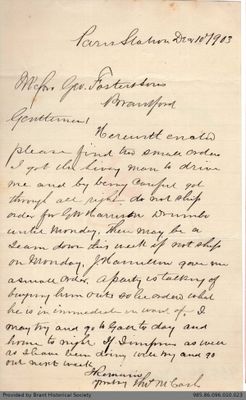 Paris Station Dec 10th 1903
Messrs Geo. Foster & Sons
Brantford
Gentlemen
Herewith enclosed
please find two small orders
I got the livery man to drive
me and by being careful got
through all right, do not ship
order for Harrison
until Monday, there may be a
team down this week if not ship
on Monday, J Hamilton gave me
a small order. A party is talking of
buying him out so he orders what
he is in immediate want of. I
may try and go to Galt to day and
home to night. If I improve as well
as I have been doing will try and go
out next week
I remain
yours truly
Published by Brant Historical Society
985.86.096.020.023